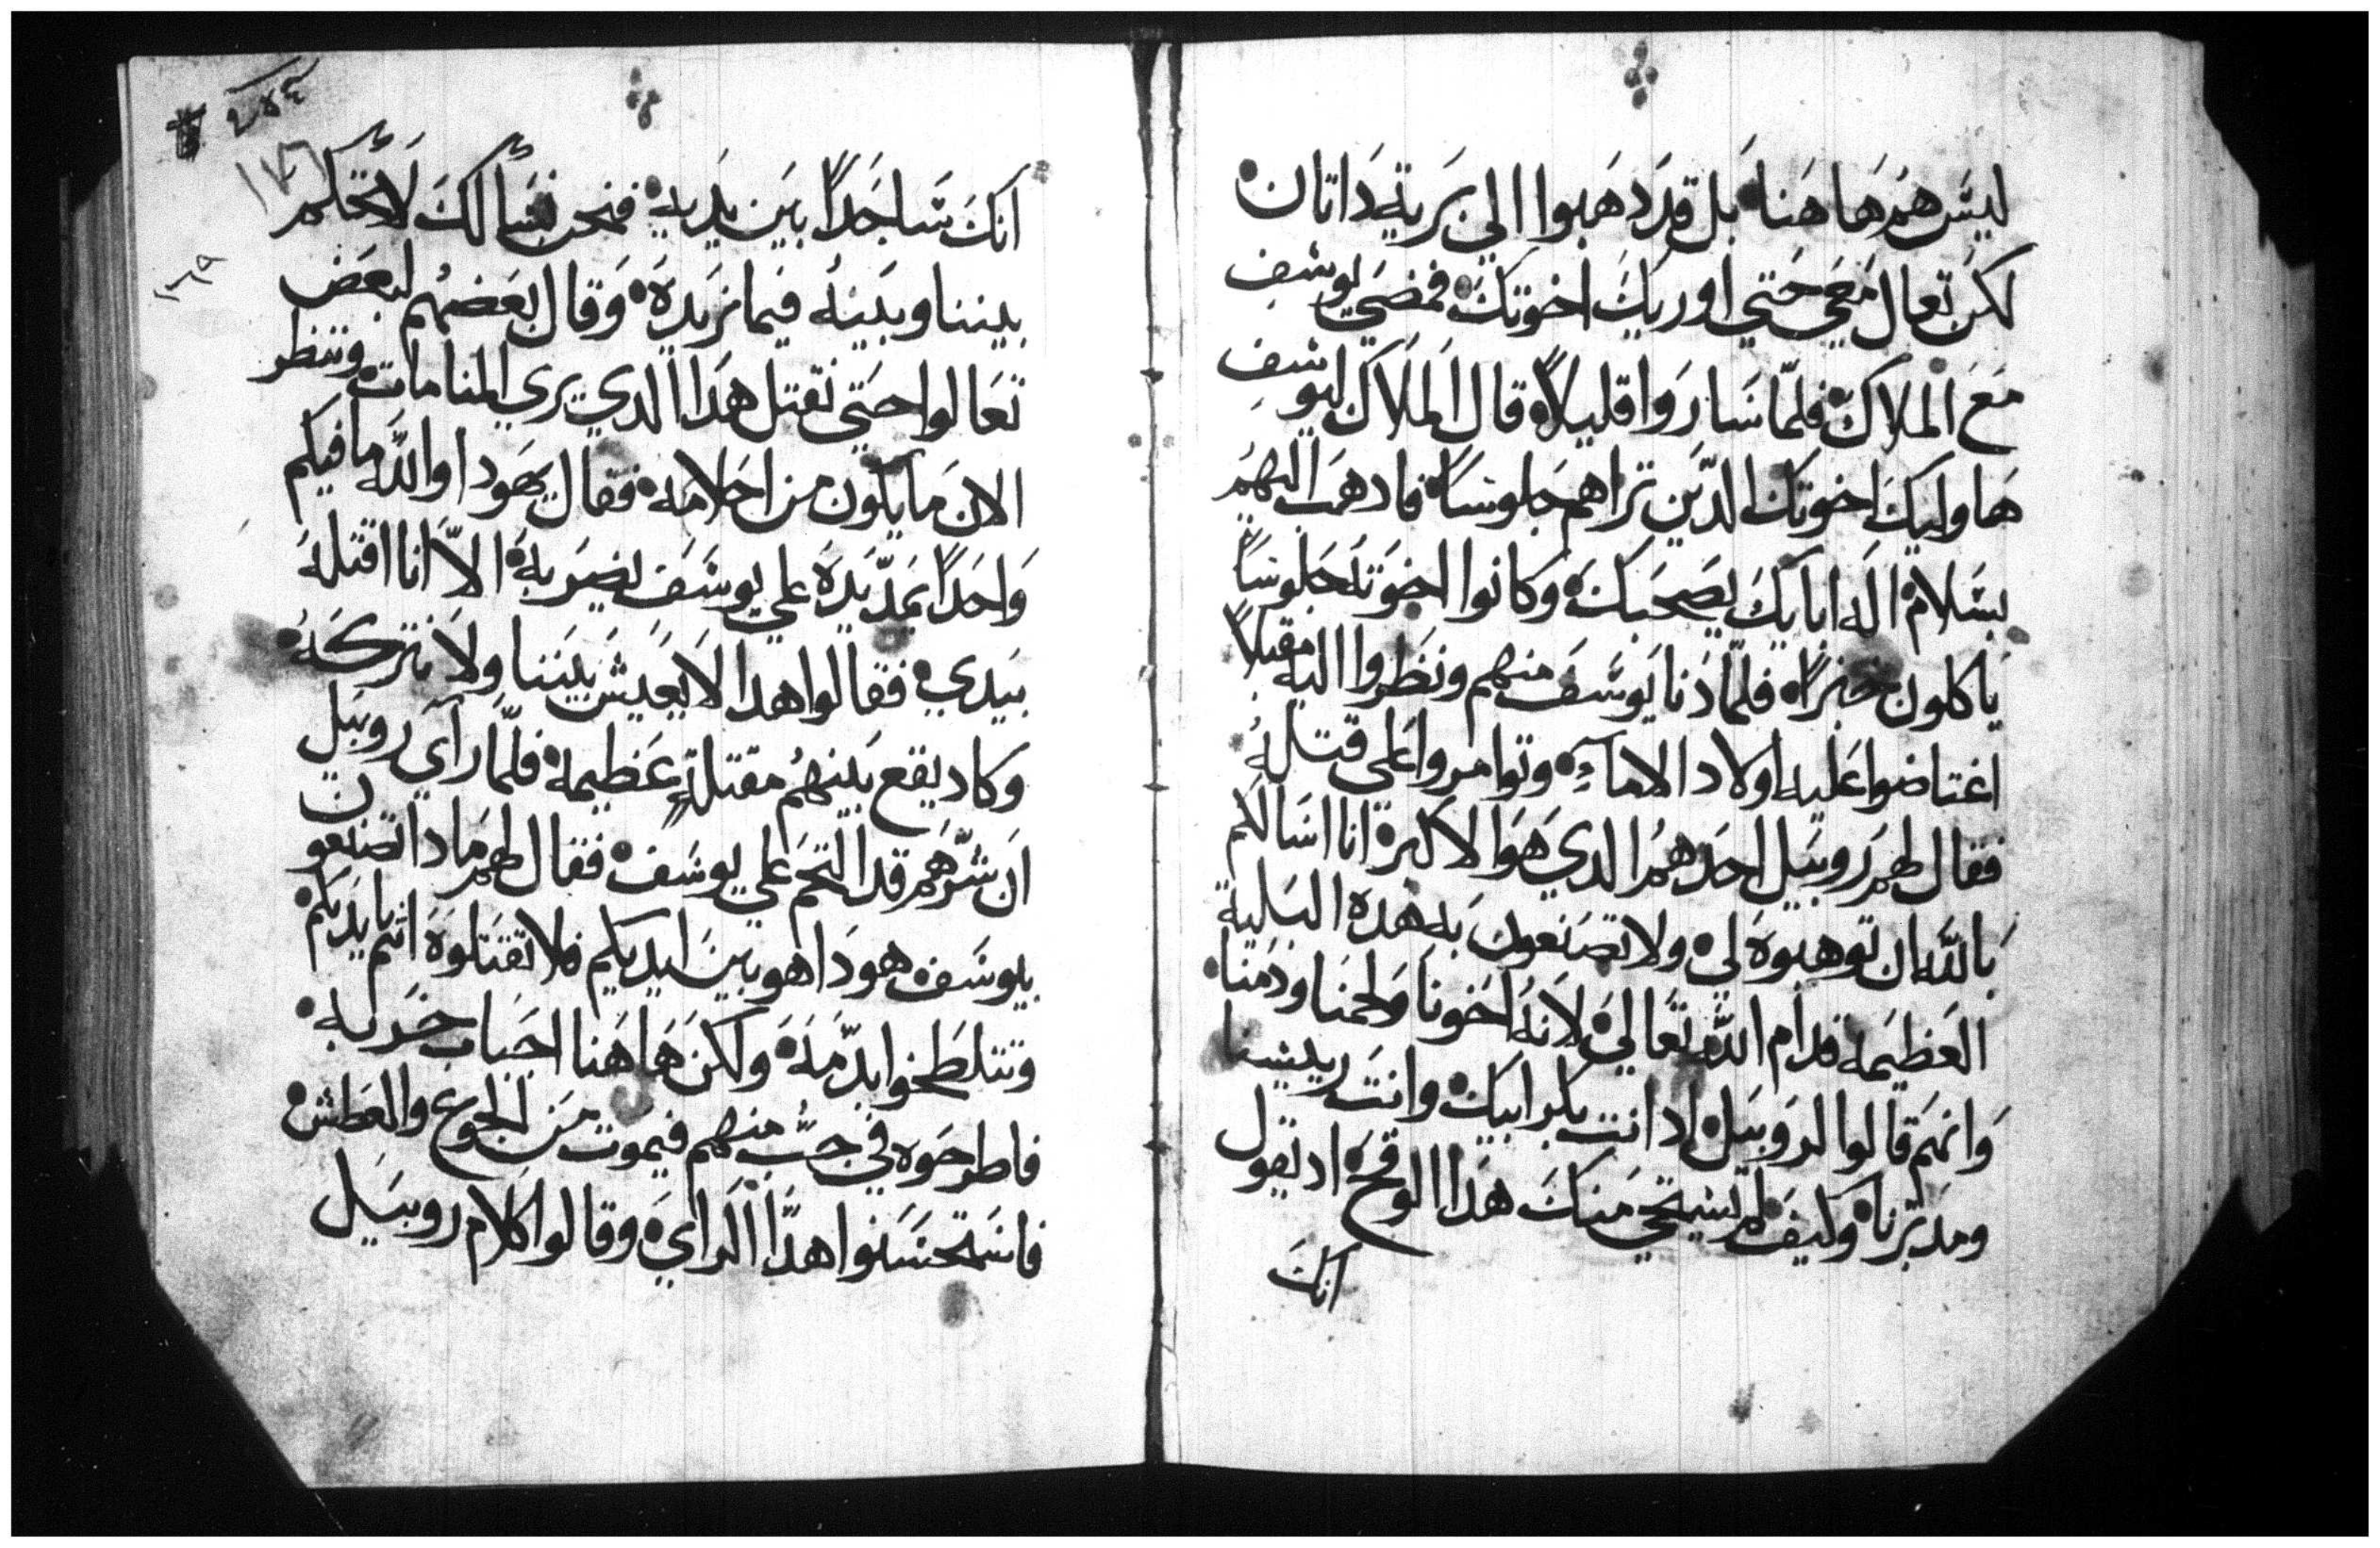 ليسَ همُ هَا هَنا بَل قدَ دَهَبوا الي بَرية دَاتان
لكن تعال معَي حَتي اوريكَ اخوتكَ فمضَي يوسف
معَ الملاك فلمّا سَارَوا قليلاً قال الملاك ليوسف
هَاوليكَ اخوتكَ الدّين تراهم جَلوسًا فادهَب اليهمُ
بسَلام اله ابايكَ يصَحَبكَ وَكانوا اخوَته جَلوسًا
ياكلون خبزًا فلمّا دَنا يَوسَف منهم ونظروا اليه مقبلاً
اغتاضوا عَليه اولاد الامآءِ وتوامروا عَلي قتلهِ
فقال لهم رَوبيَل احَدهمُ الدي هَوَ الاكبر انا اسَالكم
بَاللّه ان توهبوهَ لي ولا تصَنعون بَه هَده البَلية
العَظيمَه قدام اللّه تعَالي لانهُ اخَونا ولحمنا ودَمنا
وَانهمَ قالوا لروَبيَل اد انت بكر ابيك وانتَ ريسنا
ومدَبّرنا وكيفَ لم تسَتحي منكَ هَدا الوقح اد تقول
انكَ
٢٥٤
١٧٦
١٦٩
انكَ سَاجَدًا بيَن يدَيه فنحن نسَألكَ لاَ تحَكم
بيننا وبَينهُ فيَما نرَيدهَ وَقال بعَضهُم لبعَض
تعَالوا حتي نقتل هَدا الدي يري المنامات وننظر
الانَ ما يكون من احَلامَه فقال يهَودا واللّه ما فيكم
وَاحَدًا يمَدّ يَدهَ علي يوسَف يضرَبه الاّ انا اقتلهُ
بيَدي فقالوا هدا لا يعَيش بيَننا ولا نتركهُ
وكاد يقع بَينهُم مقتلةٍ عَظيمه فلمّا رآي روبيَل
اَن شرّهمَ قد التحَم علي يوسَف فقال لهم مَادا تصَنعون
بيوسَف هودَا هو بينَ ايديكم فلا تقتلوَهَ انتم بايديَكم
وتتلطَخوا بدّمَه ولكن هَا هَنا اجَباب خرَبه
فاطرحوَه في جبُّ منهم فيموَت مَن الجوع والعَطش
فاسَتحسَنوا هدّا الرايَ وقالوا كلام روبيَل